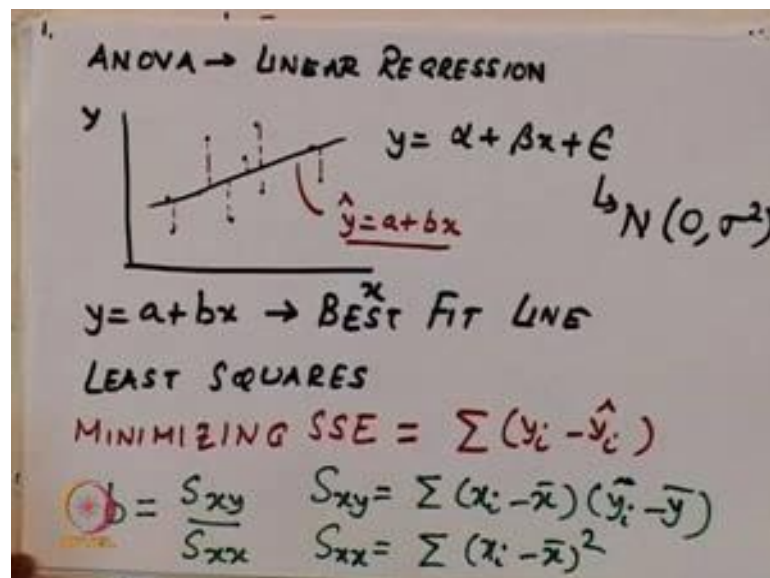 1.
ANOVA → LINEAR REGRESSION
y
y = α + βx + ϵ
↳ N(0, σ²)
ŷ = a + bx
x
y = a + bx → BEST FIT LINE
LEAST SQUARES
MINIMIZING SSE = Σ (yᵢ - ŷᵢ)
b = Sxy / Sxx Sxy = Σ (xᵢ - x̄)(ŷᵢ - ȳ)
Sxx = Σ (xᵢ - x̄)²